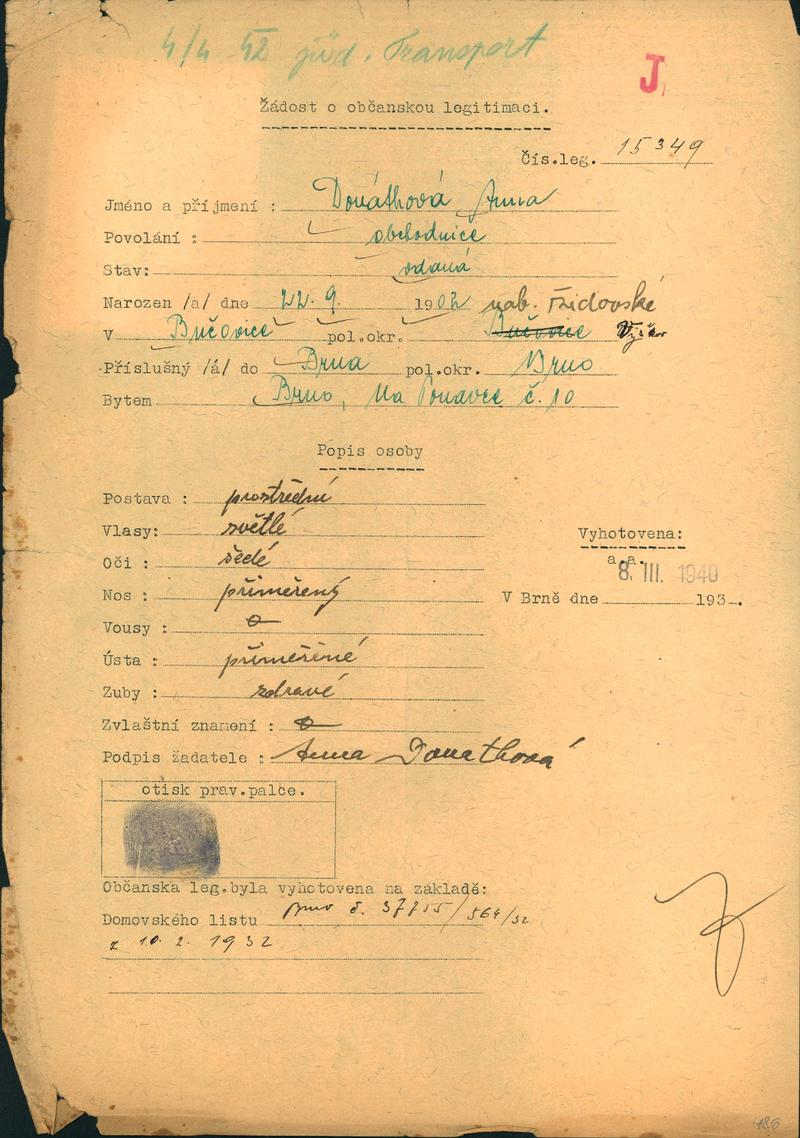 4/4 42 jüd. Transport
J
Žádost o občanskou legitimaci.
Čís.leg. 15349
Jméno a příjmení : Donáthová Anna
Povolání : obchodnice
Stav: vdaná
Narozen /a/ dne 22. 9. 1902 nab. židovské
V Bučovice pol.okr. Bučovice Vyškov
Příslušný /á/ do Brna pol.okr. Brno
Bytem Brno, Na Ponavce č. 10
Popis osoby
Postava : prostřední
Vlasy: světlé
Vyhotovena:
Oči : šedé
a.a.
Nos : přiměřený
V Brně dne 8. III. 1940 193 .
Vousy : o
Ústa : přiměřené
Zuby : zdravé
Zvlaštní znamení : o
Podpis žadatele : Anna Donathová
otisk prav.palce.
Občanská leg.byla vyhotovena na základě:
Domovského listu Brno č. 37755/564/32
z 10. 2. 1932
186